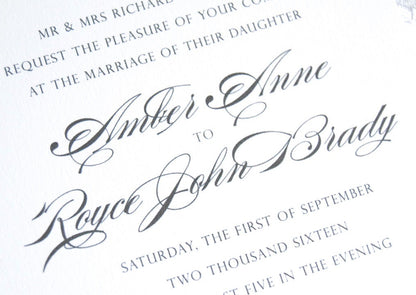 MR & MRS RICHARD
REQUEST THE PLEASURE OF YOUR
AT THE MARRIAGE OF THEIR DAUGHTER
Amber Anne
TO
Royce John Brady
SATURDAY, THE FIRST OF SEPTEMBER
TWO THOUSAND SIXTEEN
FIVE IN THE EVENING